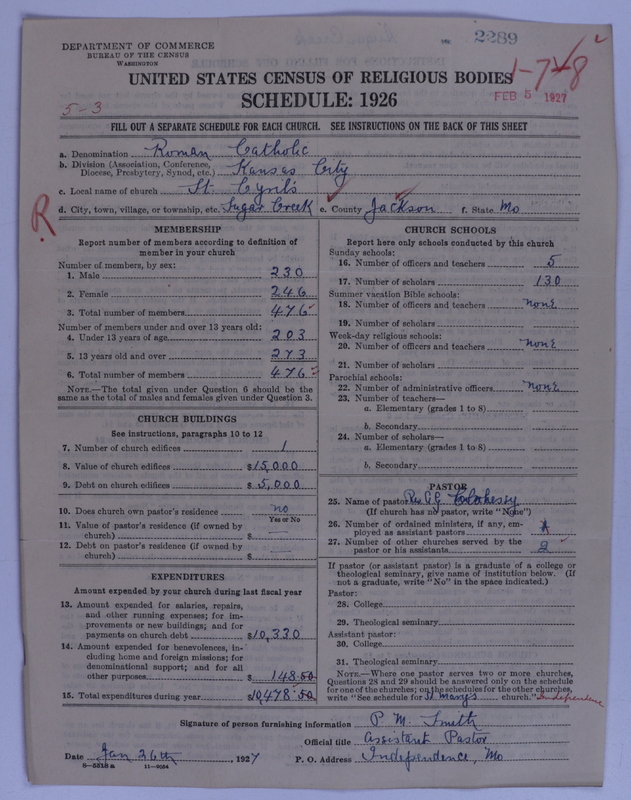 DEPARTMENT OF COMMERCE
BUREAU OF THE CENSUS
WASHINGTON
2289
1-7-48
UNITED STATES CENSUS OF RELIGIOUS BODIES
SCHEDULE: 1926
FEB 5 1927
5-3
FILL OUT A SEPARATE SCHEDULE FOR EACH CHURCH. SEE INSTRUCTIONS ON THE BACK OF THIS SHEET
a. Denomination Roman Catholic
b. Division (Association, Conference, Diocese, Presbytery, Synod, etc.) Kansas City
c. Local name of church St. Cyril's
d. City, town, village, or township, etc. Sugar Creek e. County Jackson f. State Mo
R
MEMBERSHIP
Report number of members according to definition of
member in your church
Number of members, by sex:
1. Male 230
2. Female 246
3. Total number of members 476
Number of members under and over 13 years old:
4. Under 13 years of age 203
5. 13 years old and over 273
6. Total number of members 476
NOTE.—The total given under Question 6 should be
same as the total of males and females given under Question 3.
CHURCH BUILDINGS
See instructions, paragraphs 10 to 12
7. Number of church edifices 1
8. Value of church edifices $15,000
9. Debt on church edifices $5,000
10. Does church own pastor's residence no
Yes or No
11. Value of pastor's residence (if owned by
church) $
12. Debt on pastor's residence (if owned by
church) $
EXPENDITURES
Amount expended by your church during last fiscal year
13. Amount expended for salaries, repairs,
and other running expenses; for im-
provements or new buildings; and for
payments on church debt $10,330
14. Amount expended for benevolences, in-
cluding home and foreign missions; for
denominational support; and for all
other purposes $148.50
15. Total expenditures during year $10,478.50
CHURCH SCHOOLS
Report here only schools conducted by this church
Sunday schools:
16. Number of officers and teachers 5
17. Number of scholars 130
Summer vacation Bible schools:
18. Number of officers and teachers none
19. Number of scholars
Week-day religious schools:
20. Number of officers and teachers none
21. Number of scholars
Parochial schools:
22. Number of administrative officers none
23. Number of teachers—
a. Elementary (grades 1 to 8)
b. Secondary
24. Number of scholars—
a. Elementary (grades 1 to 8)
b. Secondary
PASTOR
25. Name of pastor Rev
(If church has no pastor, write "None")
26. Number of ordained ministers, if any, em-
ployed as assistant pastors
27. Number of other churches served by the
pastor or his assistants 2
If pastor (or assistant pastor) is a graduate of a college or
theological seminary, give name of institution below. (If
not a graduate, write "No" in the space indicated.)
Pastor:
28. College
29. Theological seminary
Assistant pastor:
30. College
31. Theological seminary
NOTE.—Where one pastor serves two or more churches,
Questions 28 and 29 should be answered only on the schedule
for one of the churches; on the schedules for the other churches,
write "See schedule for St Mary's church." Independence
Signature of person furnishing information P. M. Smeth
Official title Assistant Pastor
Date Jan 26th 1927 P. O. Address Independence, Mo
8-5518a 11-9034